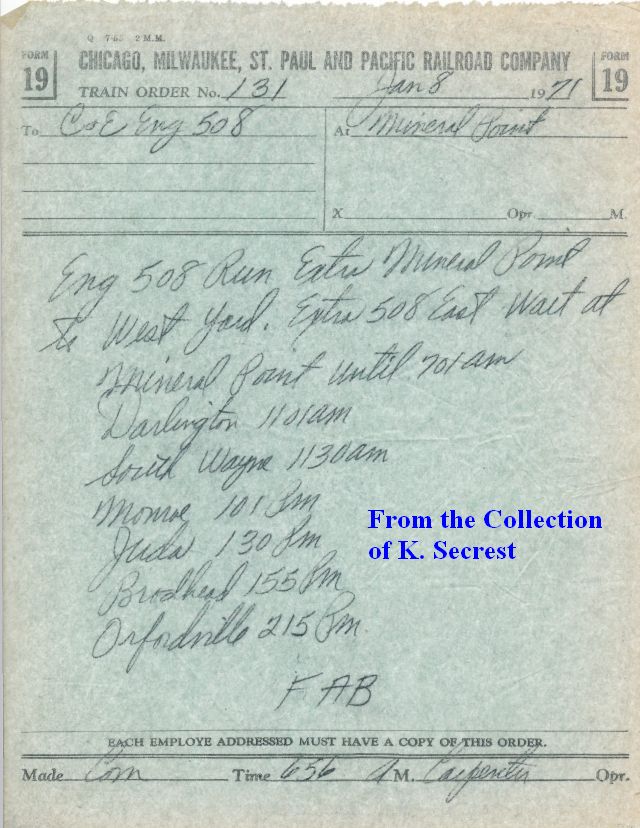 Q 7-65 2 M.M.
FORM 19
CHICAGO, MILWAUKEE, ST. PAUL AND PACIFIC RAILROAD COMPANY
FORM 19
TRAIN ORDER No. 131 Jan 8 1971
To C&E Eng 508
At Mineral Point
X Opr. M.
Eng 508 Run Extra Mineral Point
to West Yard. Extra 508 East Wait at
Mineral Point until 701 am
Darlington 1101am
South Wayne 1130am
Monroe 101 Pm
Juda 130 Pm
Brodhead 155 Pm
Orfordville 215 Pm.
From the Collection
of K. Secrest
F AB
EACH EMPLOYE ADDRESSED MUST HAVE A COPY OF THIS ORDER.
Made Com Time 656 A M. Carpenter Opr.